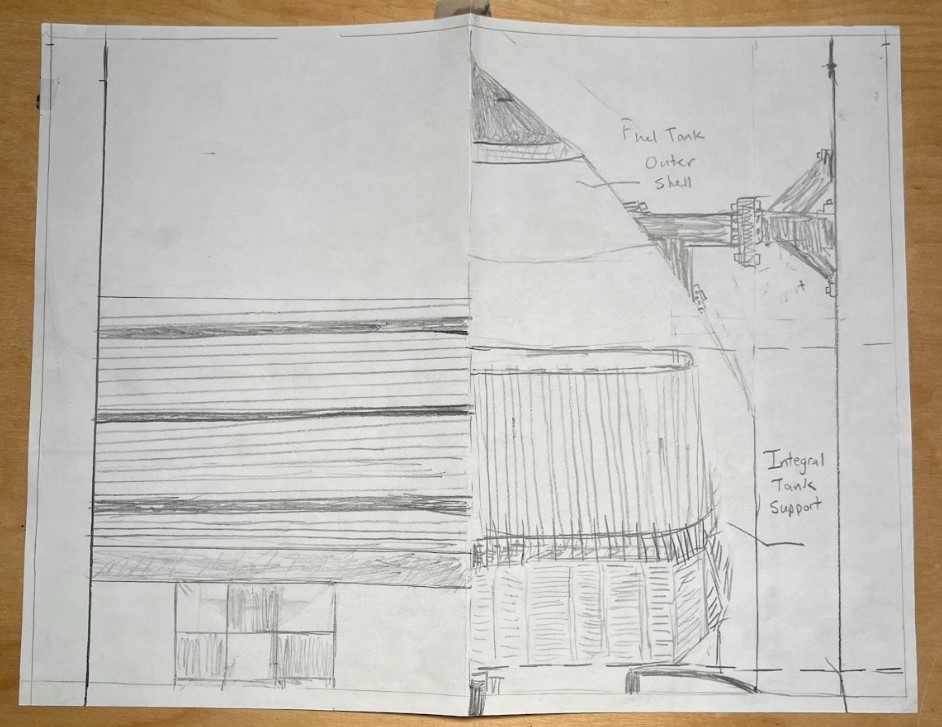 Fuel Tank
Outer
Shell
Integral
Tank
Support